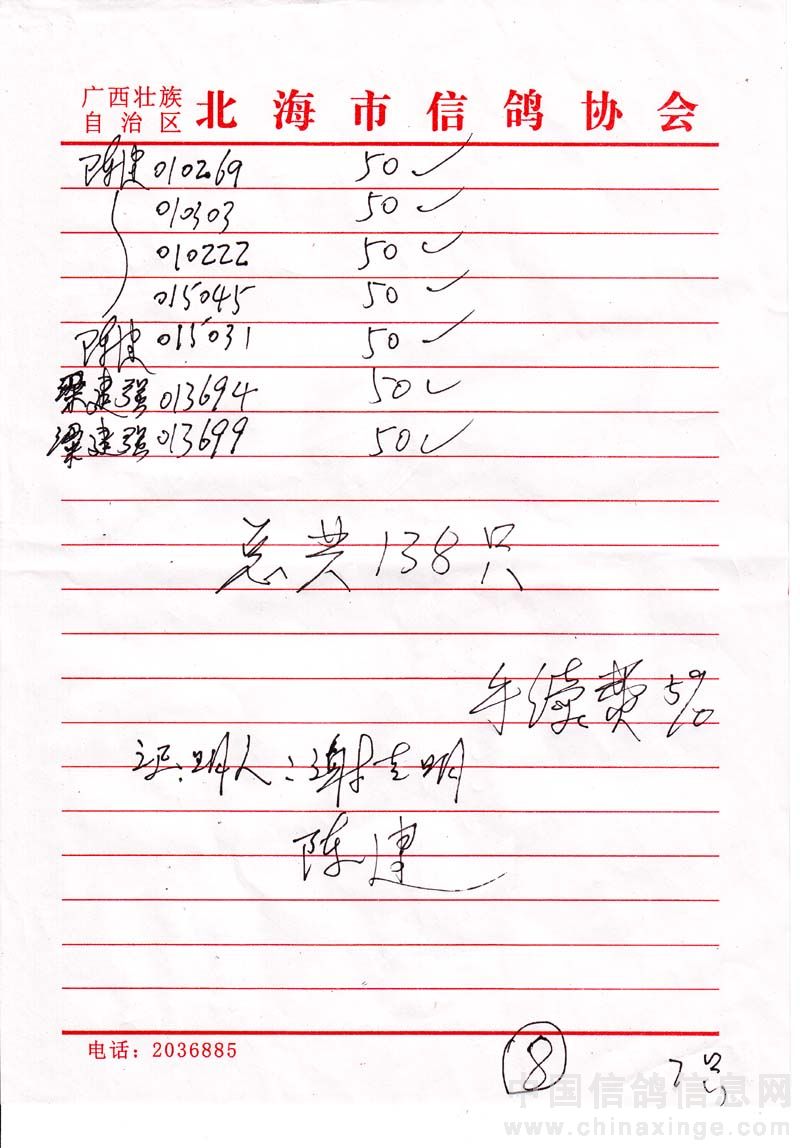 广西壮族
自治区 北海市信鸽协会
陈建 010269 50 ✓
010303 50 ✓
010222 50 ✓
015045 50 ✓
陈建 015031 50 ✓
梁建强 013694 50 ✓
梁建强 013699 50 ✓
总共138只
手续费5%
证明人：谢志明
陈建
电话：2036885
⑧ 7号
中国信鸽信息网
www.chinaxinge.com